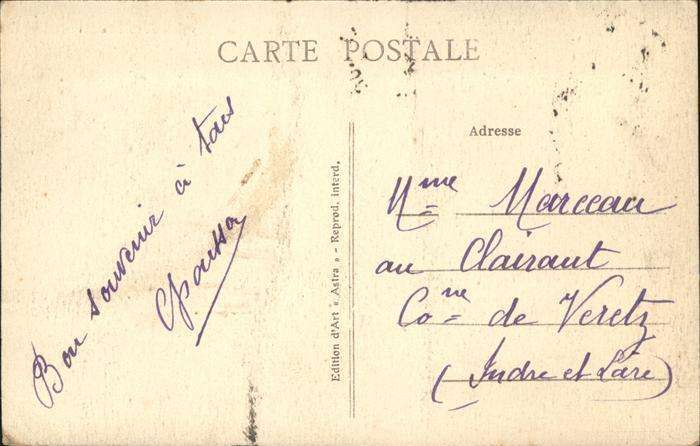 CARTE POSTALE
Bon souvenir à tous
Adresse
Mme Marceau
au Clairaut
Cone de Veretz
(Indre et Loire)
Edition d'Art « Astra » - Reprod. interd.